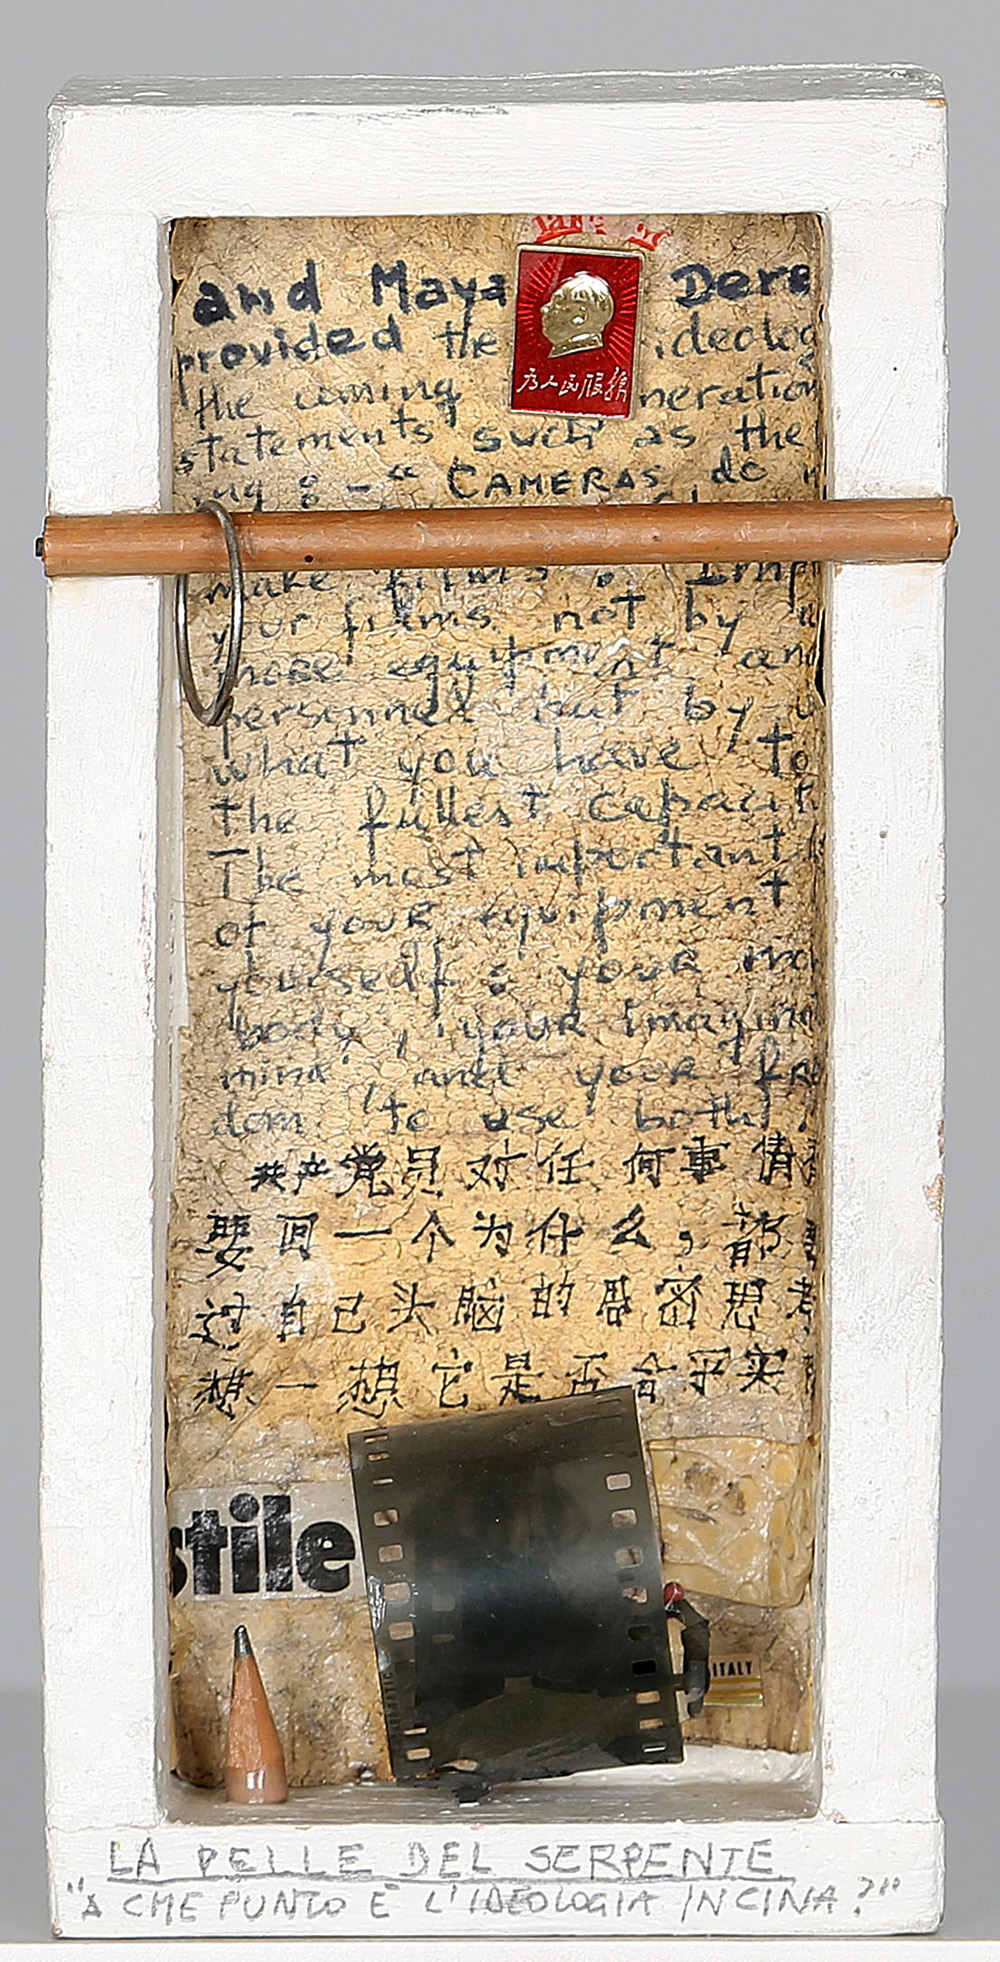 and Maya Dere
provided the ideolog
the coming neration
statements such as the
ing : - “ CAMERAS do n
make films . Imp
your films not by
more equipment and
personnel but by u
what you have to
the fullest capacit
The most important
of your equipment
yourself : your mo
body , your imagina
mind and your fre
dom to use both .
为人民服务
共产党员对任何事情
要问一个为什么，都
过自己头脑的周密思考
想一想它是否合乎实
stile
ITALY
LA PELLE DEL SERPENTE
"A CHE PUNTO È L'IDEOLOGIA IN CINA?"